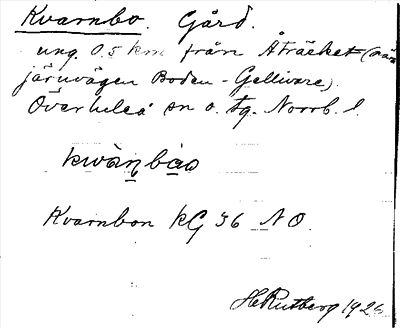 Kvarnbo. Gård.
ung. 0.5 km från Åträsket (nära
järnvägen Boden - Gellivare).
Överluleå sn o. tg. Norrb. l.
kwànbao
Kvarnbon kG 36 NO.
H Rutberg 1926